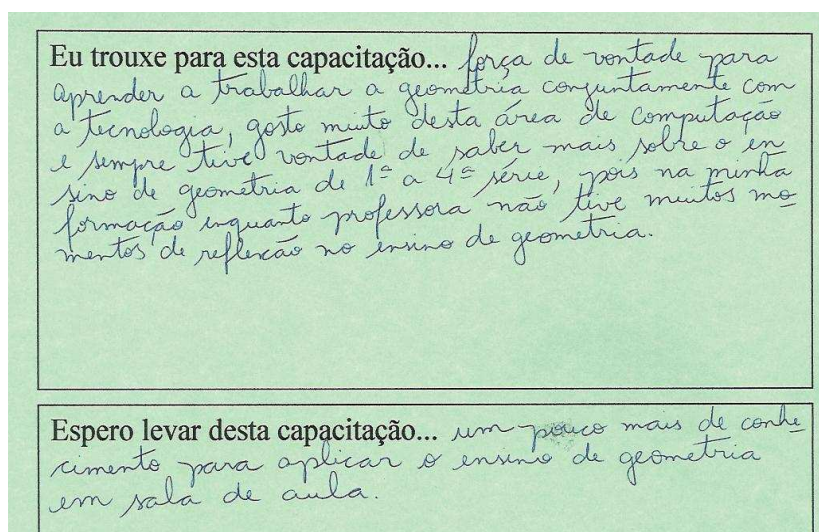 Eu trouxe para esta capacitação... força de vontade para
aprender a trabalhar a geometria conjuntamente com
a tecnologia, gosto muito desta área de computação
e sempre tive vontade de saber mais sobre o en
sino de geometria de 1ª a 4ª série, pois na minha
formação enquanto professora não tive muitos mo
mentos de reflexão no ensino de geometria.
Espero levar desta capacitação... um pouco mais de conhe
cimento para aplicar o ensino de geometria
em sala de aula.